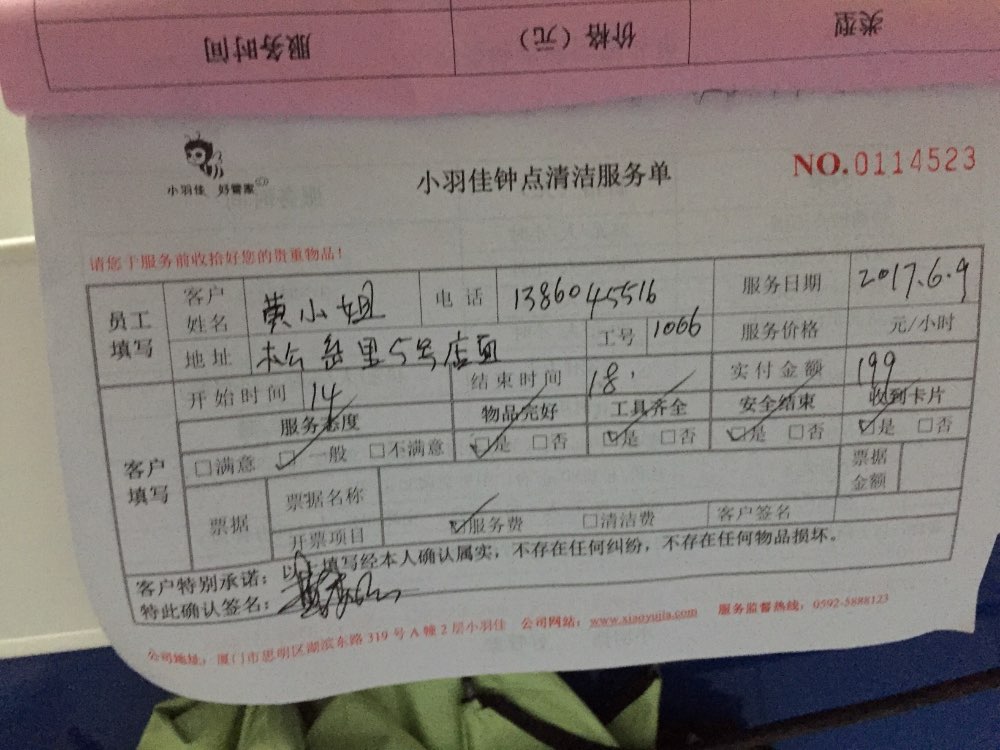 服务时间 价格（元） 类型
小羽佳 好管家
小羽佳钟点清洁服务单
NO.0114523
请您于服务前收拾好您的贵重物品！
员工填写 客户姓名 黄小姐 电话 13860455516 服务日期 2017.6.9
地址 松岳里5号店面 工号 1066 服务价格 元/小时
客户填写 开始时间 14 结束时间 18 实付金额 199
服务态度 物品完好 工具齐全 安全结束 收到卡片
□满意 ☑一般 □不满意 ☑是 □否 ☑是 □否 ☑是 □否 ☑是 □否
票据 票据名称 票据金额
开票项目 ☑服务费 □清洁费 客户签名
客户特别承诺：以上填写经本人确认属实，不存在任何纠纷，不存在任何物品损坏。
特此确认签名：
公司地址：厦门市思明区湖滨东路 319 号 A 幢 2 层小羽佳 公司网站：www.xiaoyujia.com 服务监督热线：0592-5888123